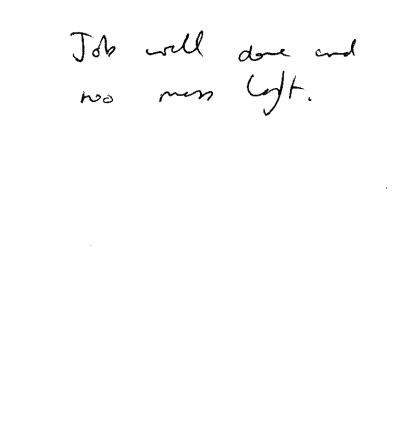 Job well done and
no mess left.